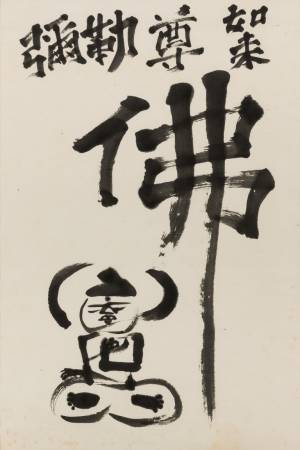 彌勒尊如来
佛